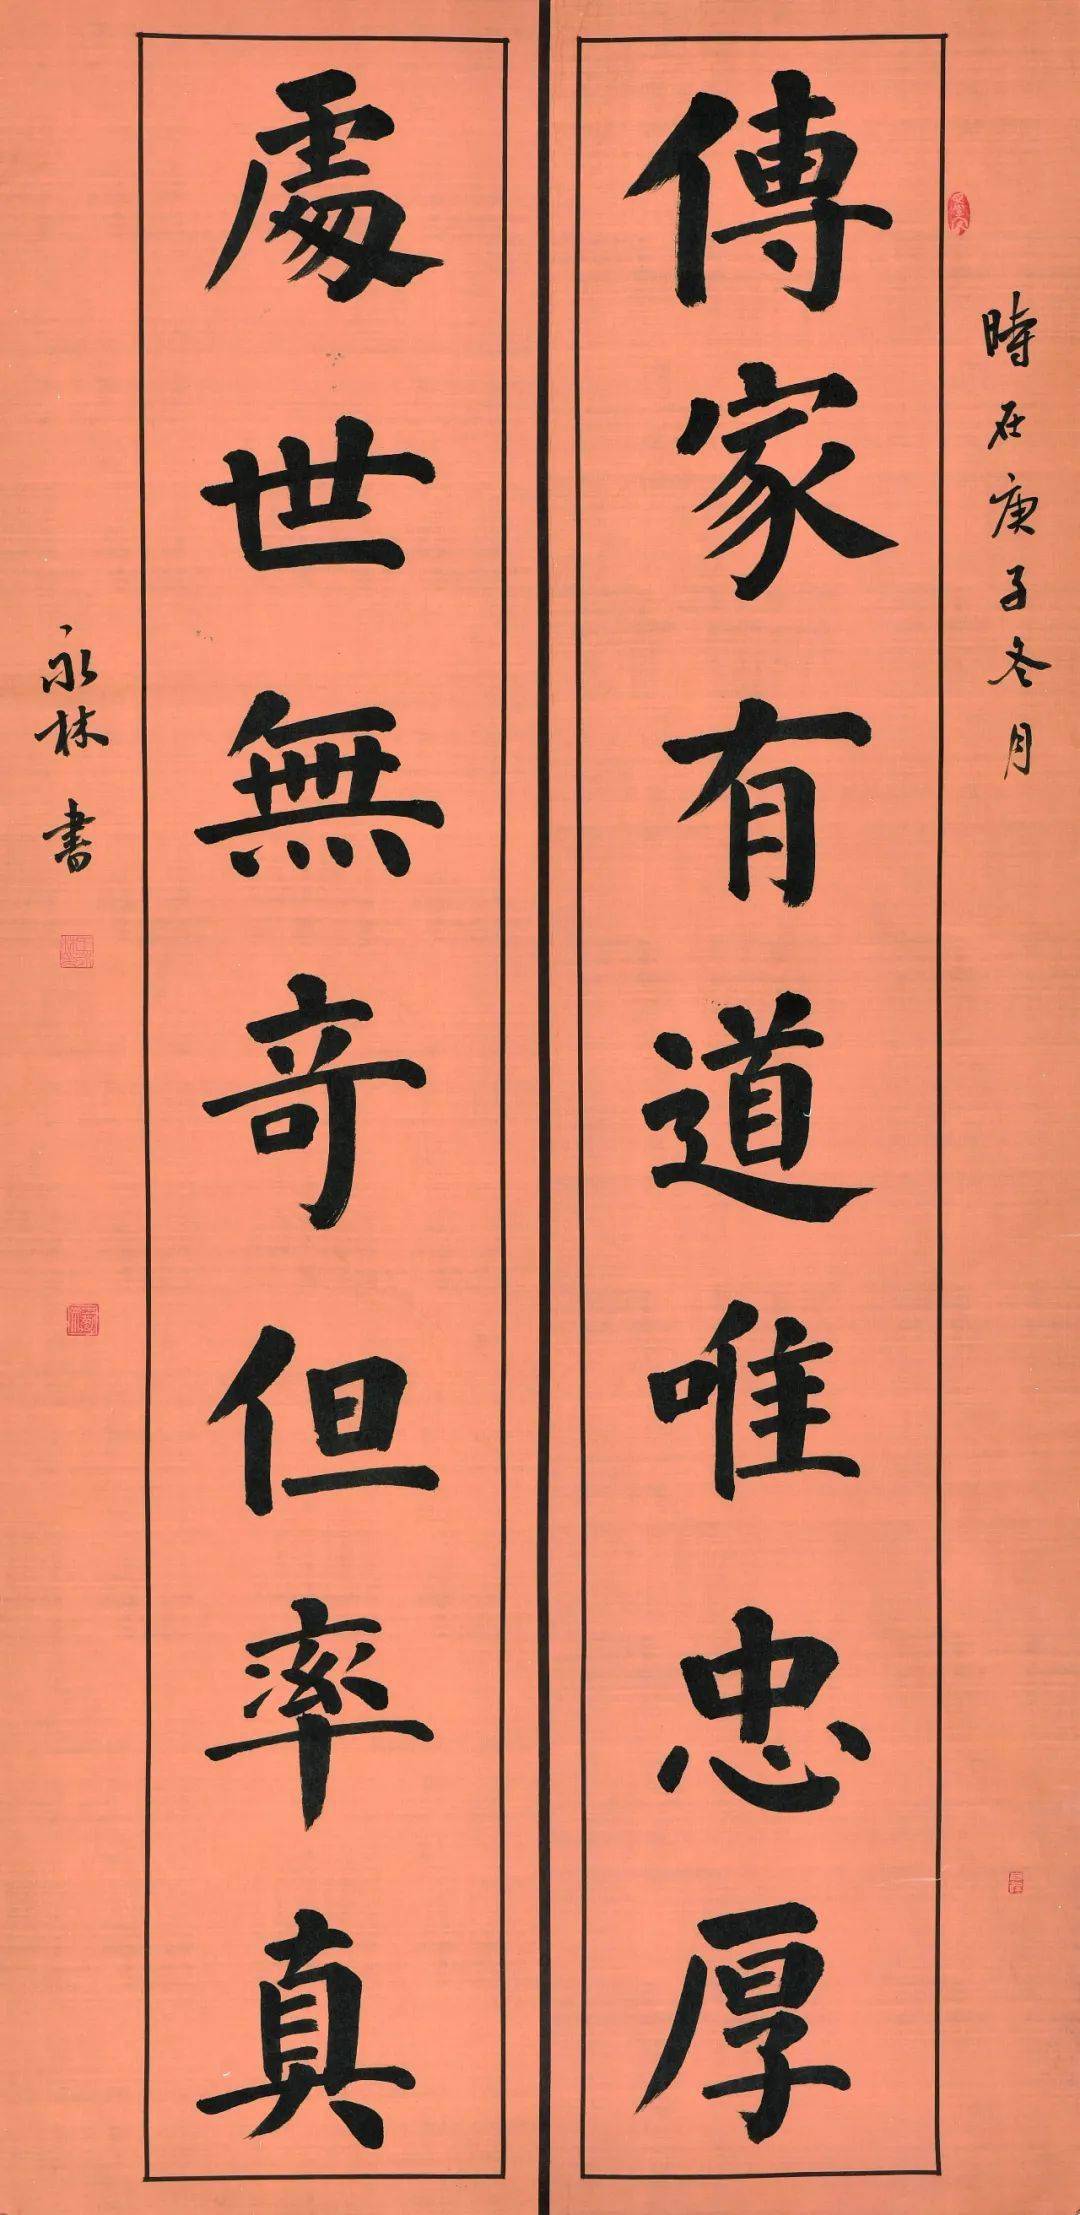 時在庚子冬月
傳家有道唯忠厚
處世無奇但率真
永林書